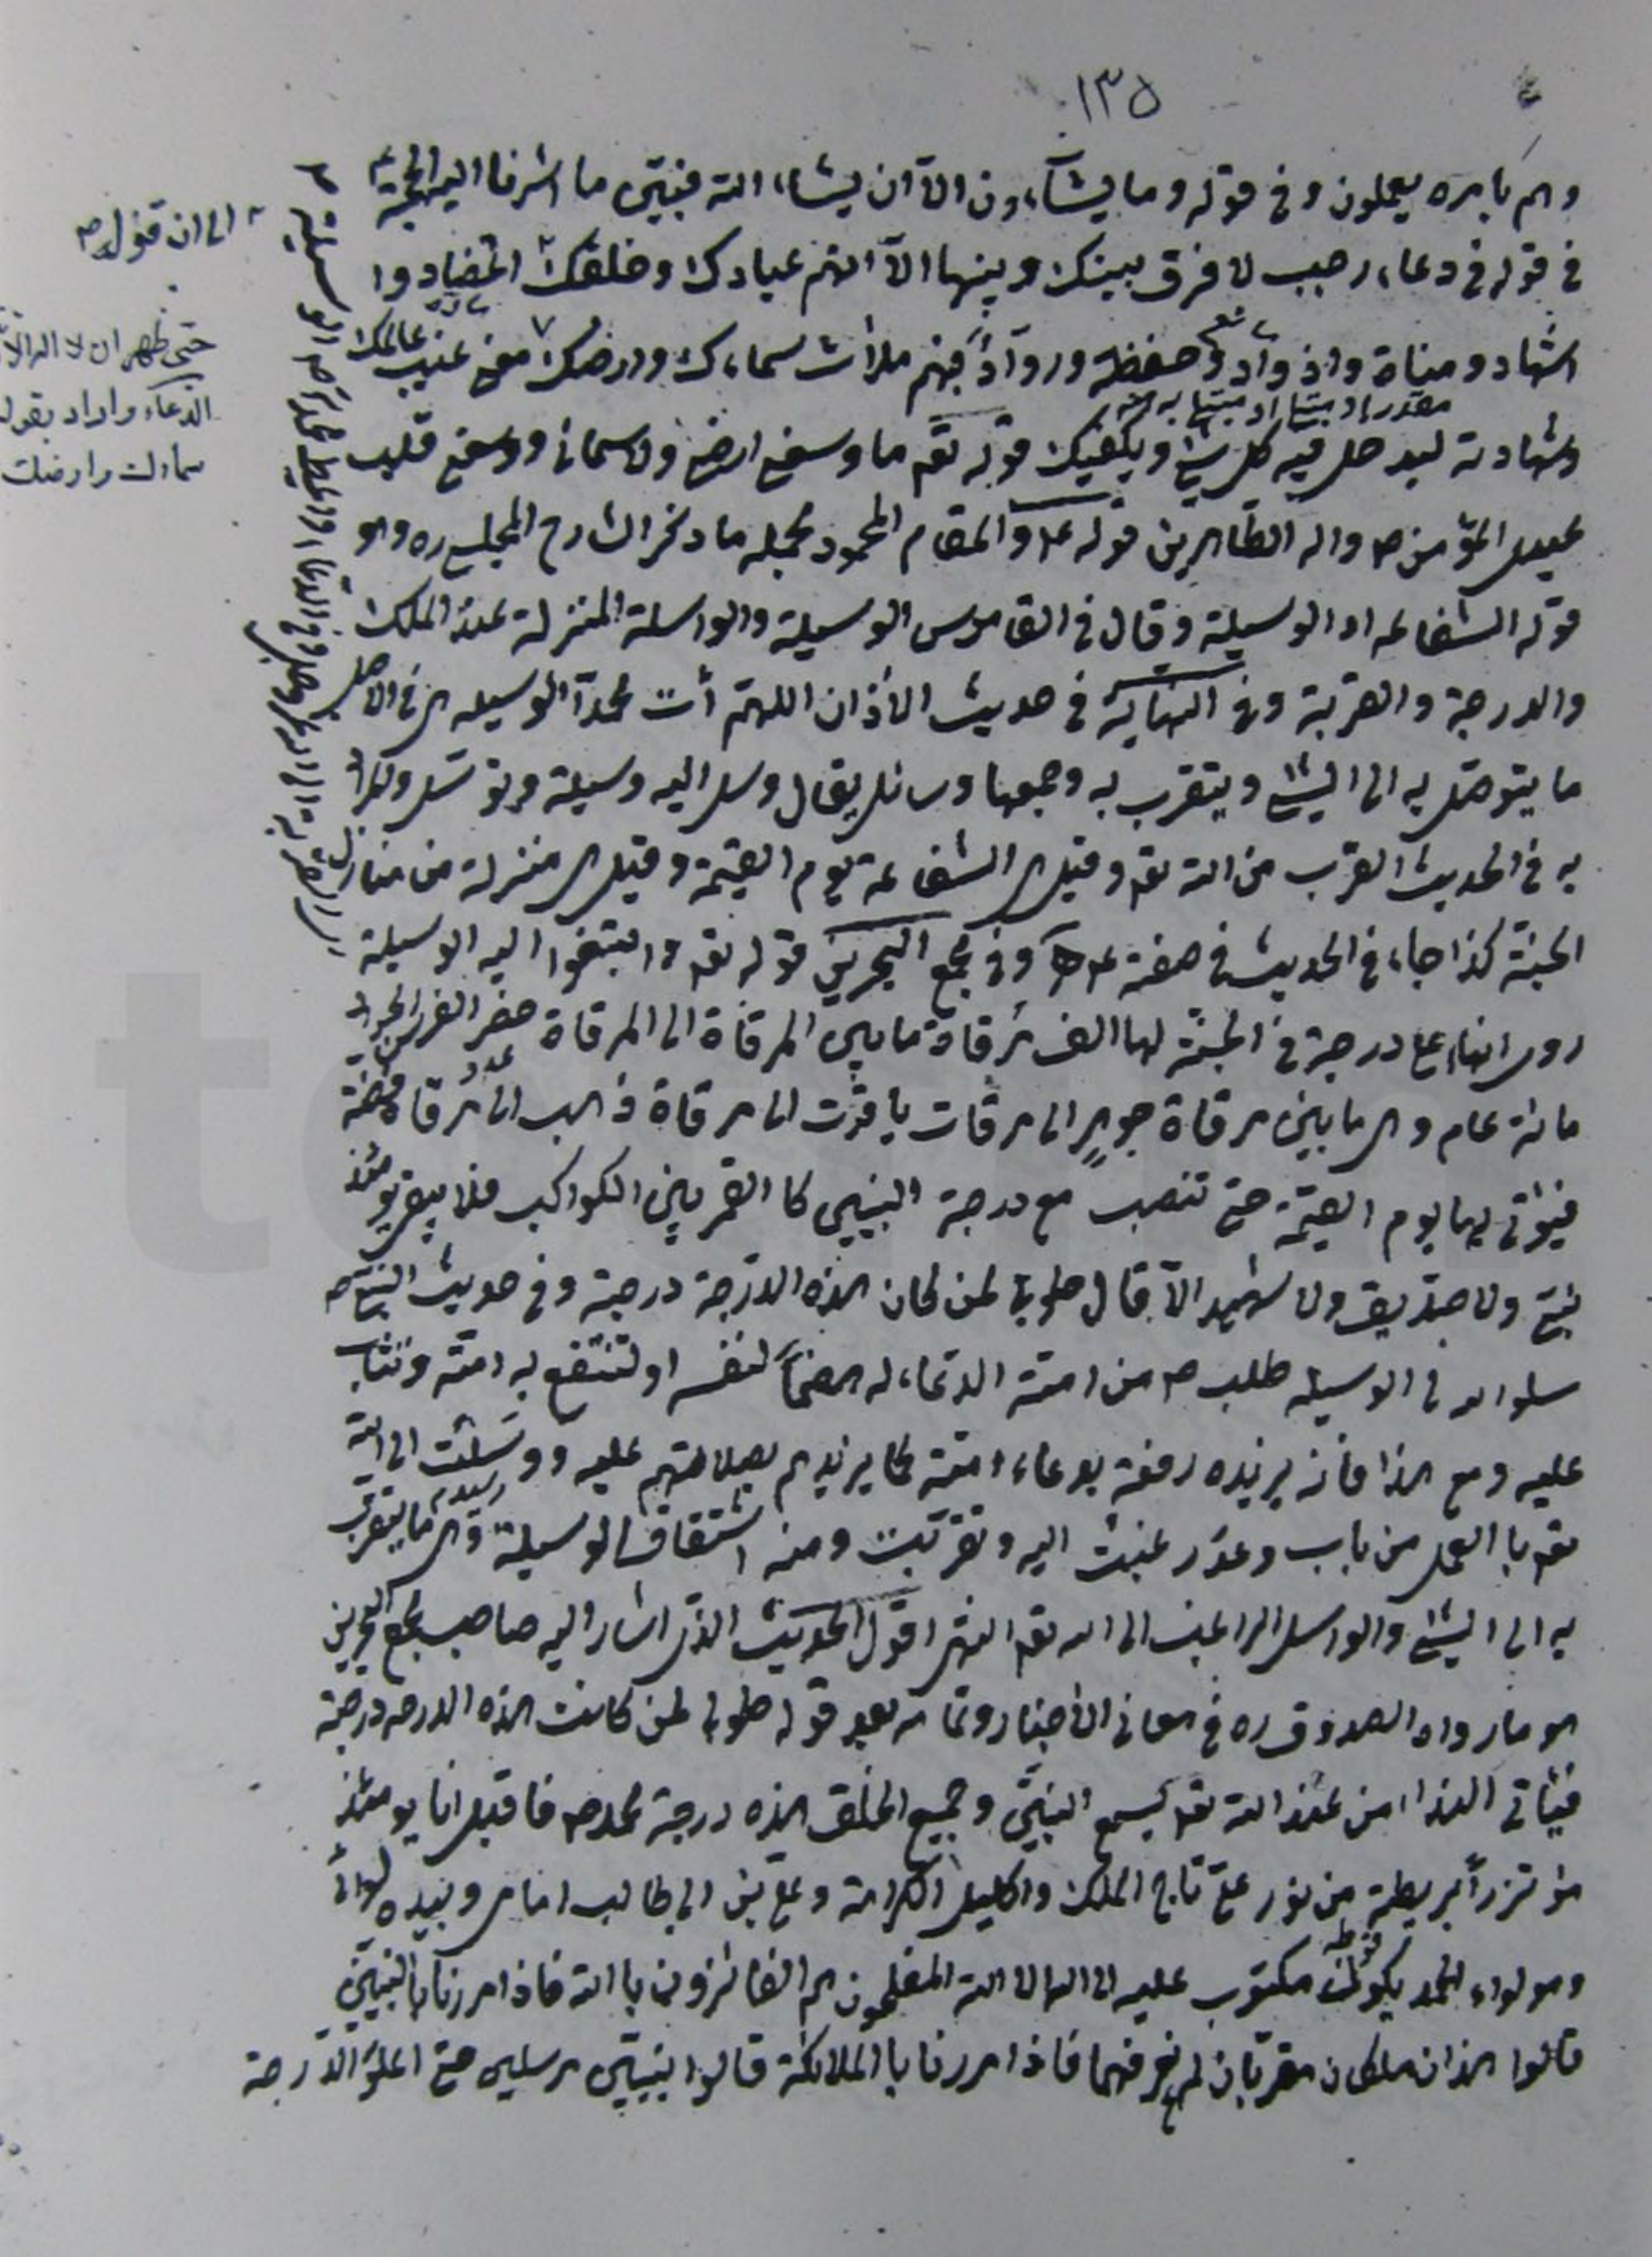 ١٣٥
وهم بامره يعملون وفي قوله وما يشآءون الّا ان يشاء الله فبيّن ما اشرنا اليه الحجة ع
في قوله في دعاء رجب لا فرق بينك وبينها الّا انهم عبادك وخلقك اعضاد وا
اشهاد ومناة واذواد وحفظة وروّاد فبهم ملأت سماءك وارضك
وشهادته ليدخل فيه كل شئ ويكفيك قوله تع ما وسعني ارضي ولا سمائي ووسعني قلب
عبدي المؤمن ص واله الطاهرين قوله ع والمقام المحمود مجمله ما ذكر الشارح المجلسي ره وهو
قوله الشفاعه او الوسيلة وقال في القاموس الوسيلة والواسلة المنزلة عند الملك
والدرجة والقربة وفي النهاية في حديث الأذان اللهمّ أت محمّداً الوسيله هي في الاصل
ما يتوصّل به الى الشئ ويتقرب به وجمعها وسائل يقال وسل اليه وسيلة وتوسّل والمراد
به في الحديث القرب من الله تع وقيل هي الشفاعة يوم القيمة وقيل هي منزلة من منازل
الجنّة كذا جاء في الحديث في صفته وفي مجمع البحرين قوله تع وابتغوا اليه الوسيلة
روي انها اعلى درجة في الجنّة لها الف مرقاة ما بين المرقاة الى المرقاة حضر الفرس الجواد
مائة عام وهي ما بين مرقاة جوهر الى مرقات ياقوت الى مرقاة ذهب الى مرقاة فضّة
فيؤتى بها يوم القيمة حتى تنصب مع درجة النبيين كالقمر بين الكواكب فلا يبقى يومئذ
نبيّ ولا صدّيق ولا شهيد الّا قال طوبى لمن كان هذه الدّرجة درجته وفي حديث النبي ص
سلوا الله لي الوسيله طلب ص من امته الدعاء له هضماً لنفسه او لتنتفع به امّته وتثاب
عليه ومع هذا فانه يزيده رفعة بدعاء امته كما يزيدهم بصلاتهم عليه ووسلت الى الله
تع بالعمل من باب وعد رغبت اليه وتقربت ومنه اشتقاق الوسيلة وهي ما يتقرب
به الى الشئ والواسل الراغب الى الله تع انتهى اقول الحديث الذي اشار اليه صاحب مجمع البحرين
هو ما رواه الصدوق ره في معاني الأخبار وتمامه بعد قوله طوبى لمن كانت هذه الدرجه درجته
فيأتي النداء من عند الله تع يسمع النبيّين وجميع الخلق هذه درجة محمد ص فاقبل انا يومئذ
مؤتزراً بريطة من نور عليّ تاج الملك واكليل الكرامة وعلي بن ابي طالب امامي وبيده لوائي
وهو لواء الحمد مكتوب عليه لا اله الا الله المفلحون هم الفائزون بالله فاذا مررنا بالنبيين
قالوا هذان ملكان مقرّبان لم نعرفهما فاذا مررنا بالملائكة قالوا نبيين مرسلين حتى اعلو الدّرجة
الى ان قوله ص
حتى ظهر ان لا اله الا
الدعاء واراد بقوله
سماءك وارضك